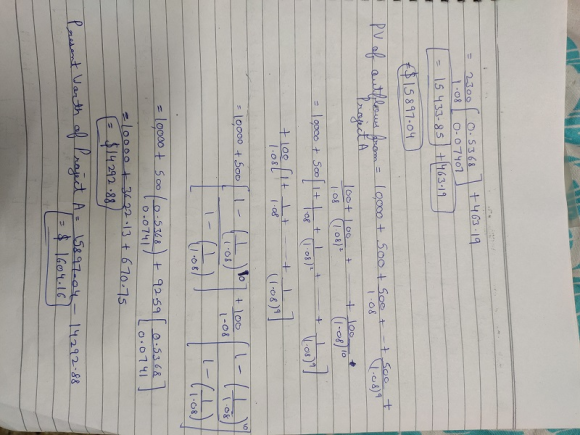 = 2300/1.08 [ 0.5368 / 0.07407 ] + 463.19
= 15433.85 + 463.19
= $15897.04
PV of outflows from Project A = 10,000 + 500 + 500/1.08 + - + 500/(1.08)^9 +
100/1.08 + 100/(1.08)^2 + --- + 100/(1.08)^10
= 10,000 + 500 [ 1 + 1/1.08 + 1/(1.08)^2 + --- + 1/(1.08)^9 ]
+ 100/1.08 [ 1 + 1/1.08 + --- + 1/(1.08)^9 ]
= 10,000 + 500 [ 1 - (1/(1.08))^10 / 1 - (1/1.08) ] + 100/1.08 [ 1 - (1/1.08)^10 / 1 - (1/1.08) ]
= 10,000 + 500 ( 0.5368 / 0.0741 ) + 9259 [ 0.5368 / 0.0741 ]
= 10000 + 3622.13 + 670.75
= $14292.88
Present Worth of Project A = 15897.04 - 14292.88
= $ 1604.16